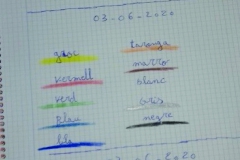 03-06-2020
groc
taronja
vermell
marró
verd
blanc
blau
gris
negre